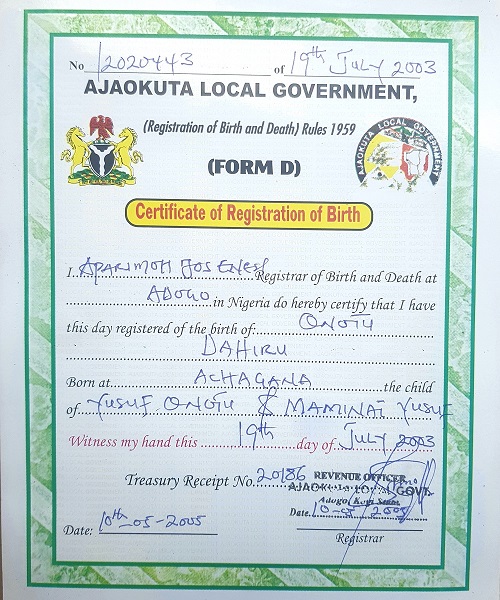 No 12020443 of 19th July 2003
AJAOKUTA LOCAL GOVERNMENT,
(Registration of Birth and Death) Rules 1959
AJAOKUTA LOCAL GOVERNMENT
(FORM D)
Certificate of Registration of Birth
I. Registrar of Birth and Death at
ADOGO in Nigeria do hereby certify that I have
this day registered of the birth of: ONOTU
DAHIRU
Born at ACHAGANA the child
of Yusuf ONOTU & MAMINAT Yusuf
Witness my hand this 19th day of July 2003
Treasury Receipt No. 20186
REVENUE OFFICER
AJAOKUTA LOCAL GOVT.
Adogo, Kogi State
Date. 10-05-2005
Date: 10th-05-2005
Registrar